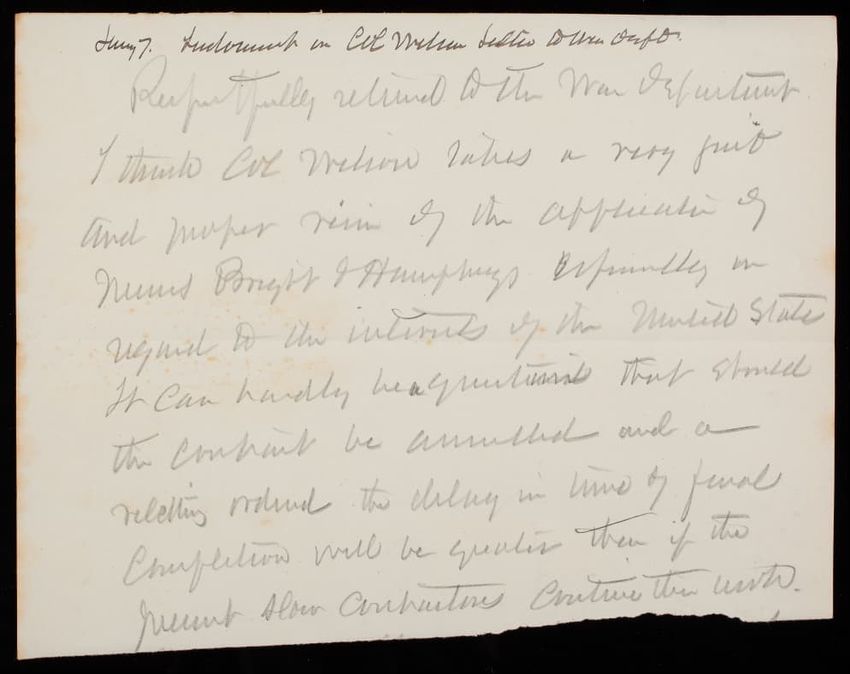 Endorsement on Col Wilson letter to War Dept.
Respectfully returned to the War Department
I think Col Wilson takes a very just
and proper view of the application of
Messrs Bright & Humphreys especially in
regard to the interests of the United States
It can hardly be questioned that should
the contract be annulled and a
reletting ordered the delay in time of final
Completion will be greater than if the
present slow contractors continue the work.